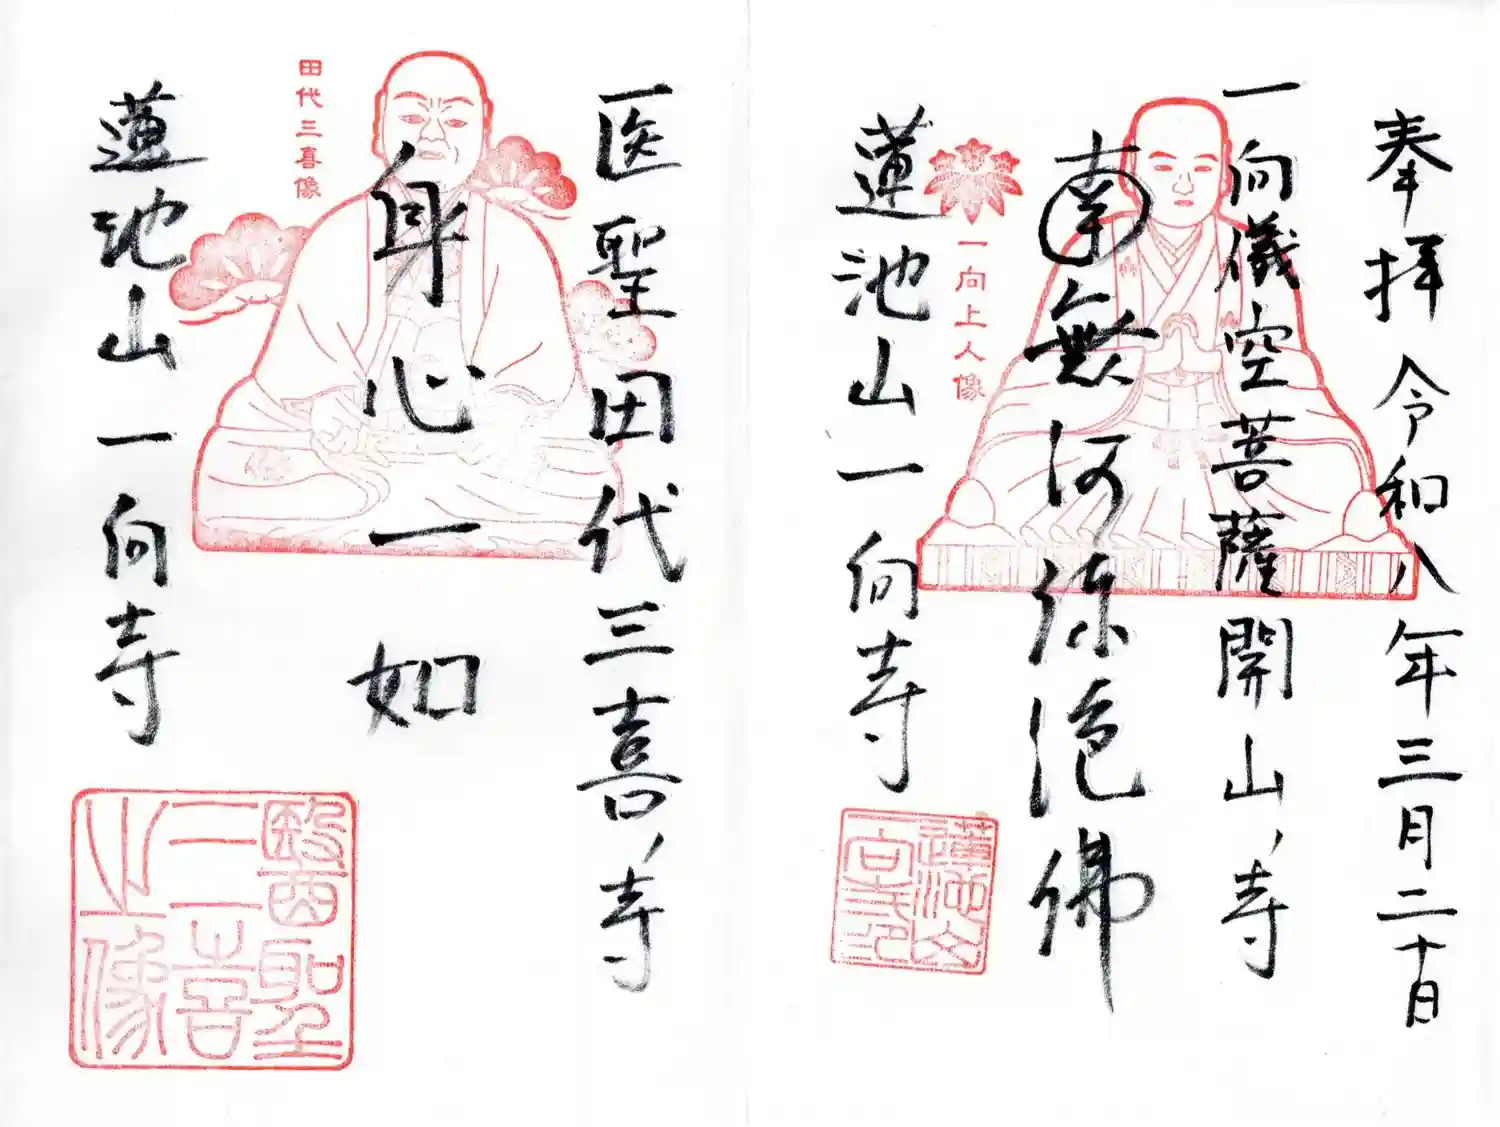 奉拝 令和八年三月二十日
一向儀空菩薩開山寺
南無阿弥陀佛
一向上人像
蓮池山一向寺
蓮池山
一向寺印
医聖田代三喜寺
身心一如
田代三喜像
蓮池山一向寺
醫聖
三喜
之像